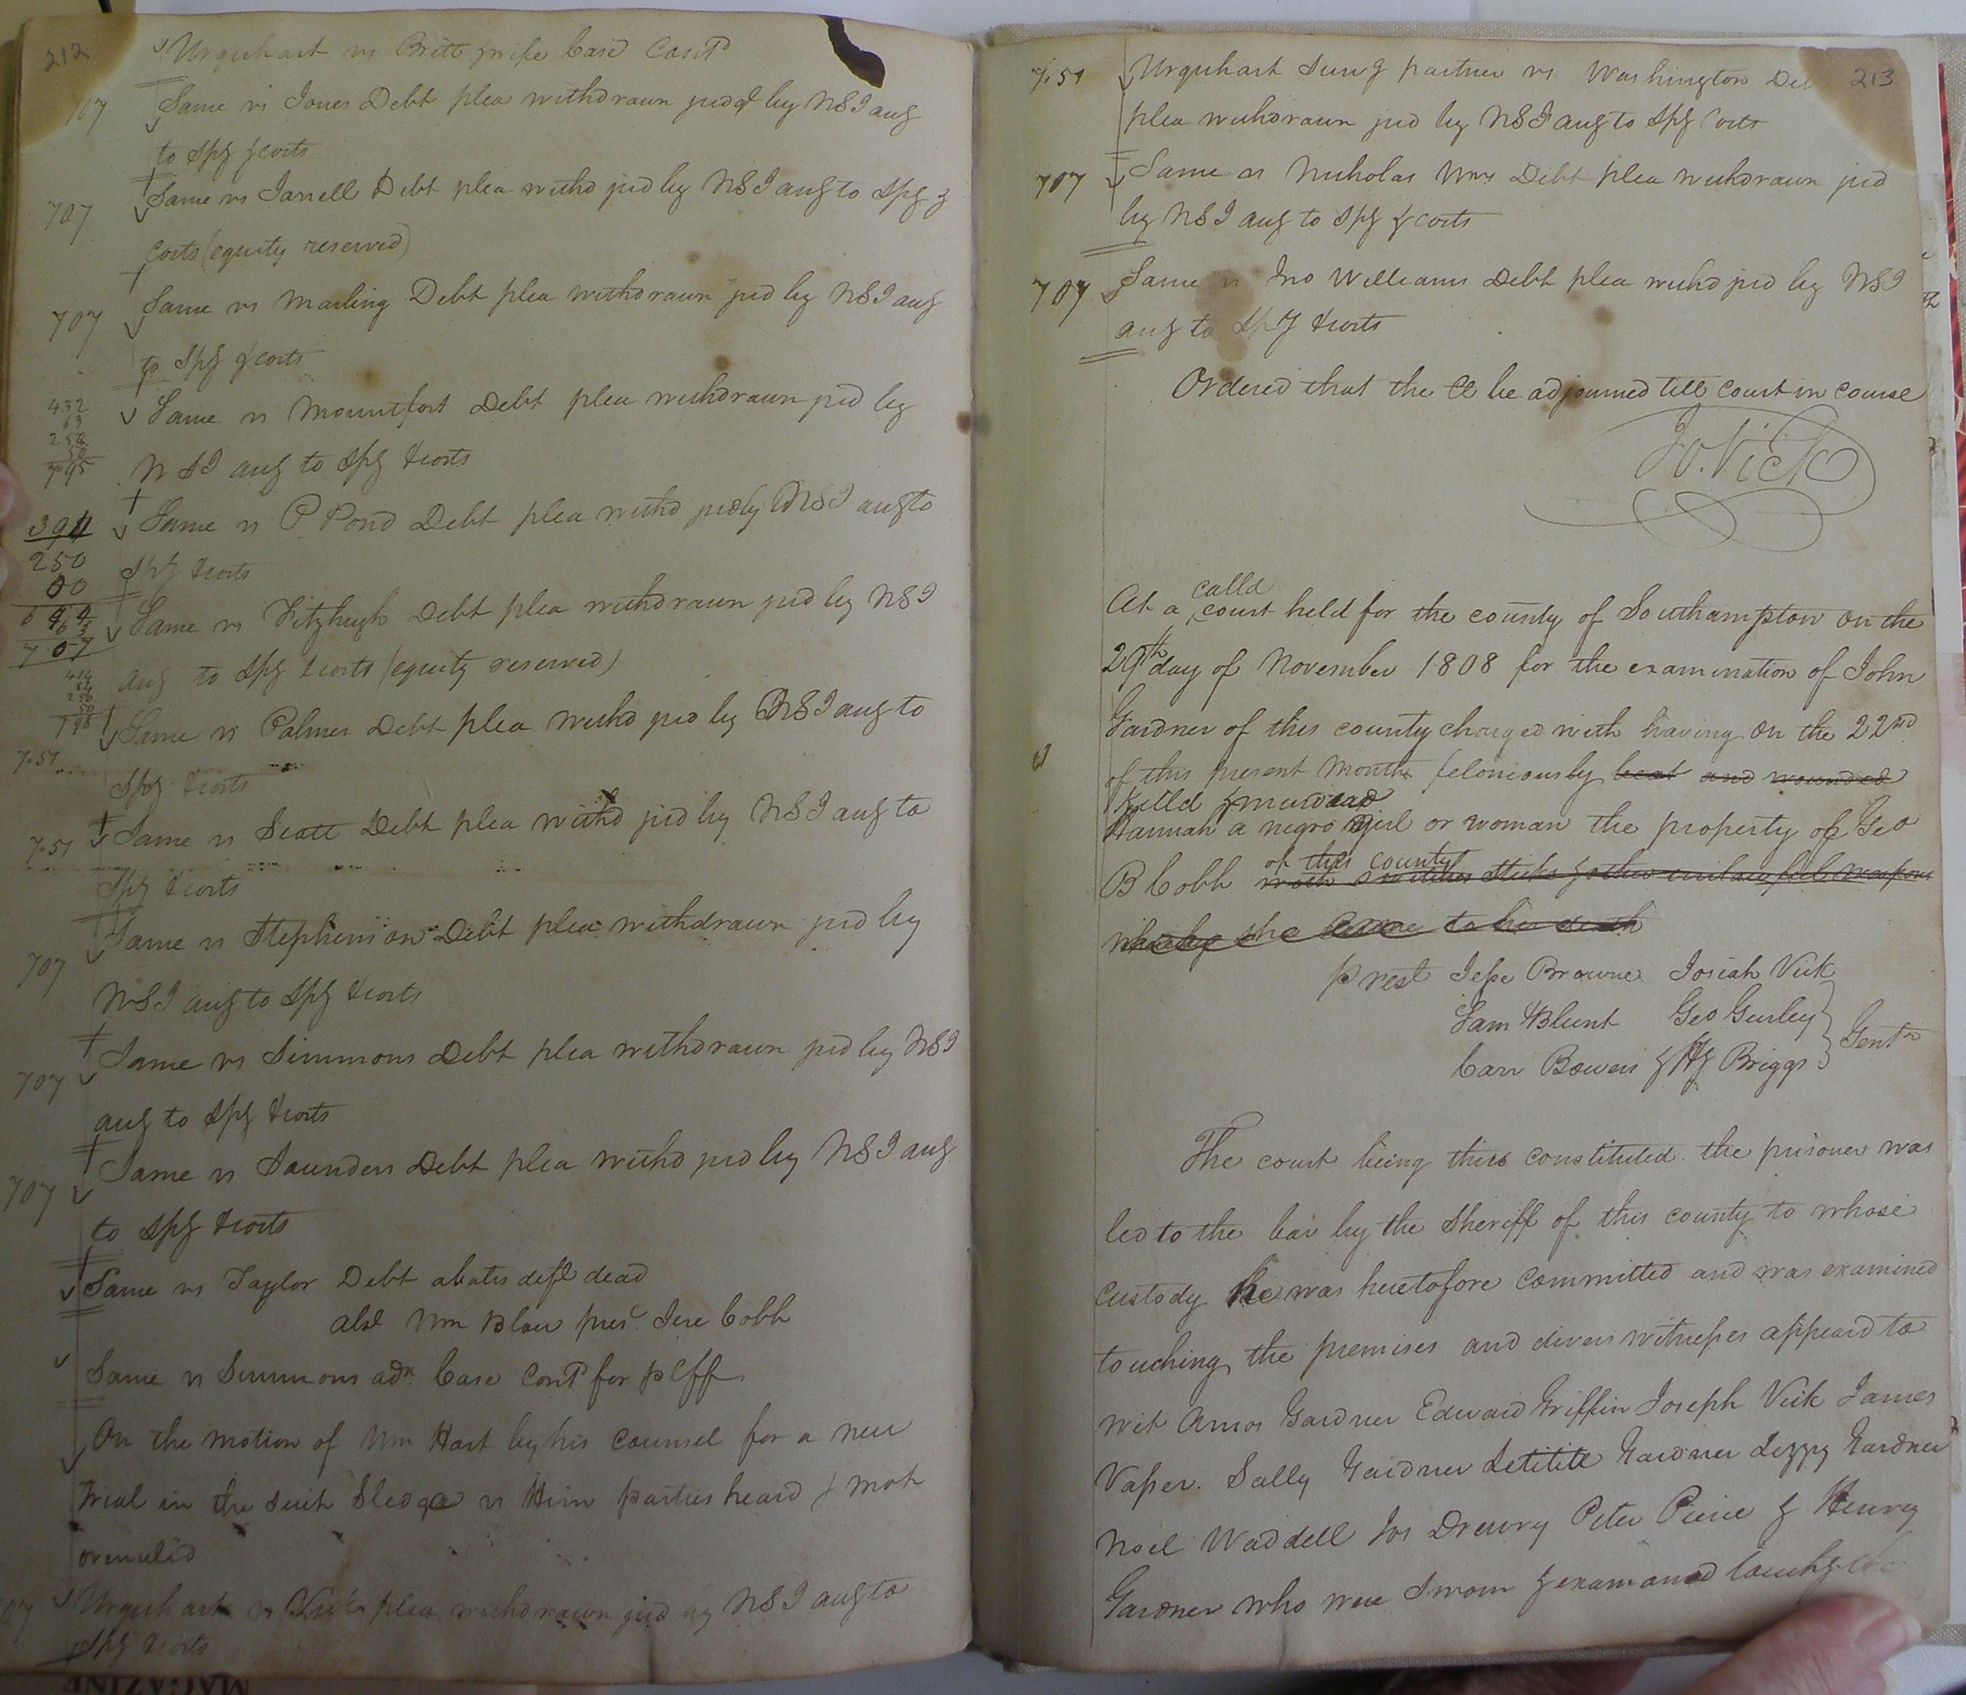 212
Urquhart vs Britt & wife Case Contd
707 Same vs Jones Debt plea withdrawn judgt by NSI aug
to Spg & costs
707 Same vs Jarrell Debt plea withd jud by NSI aug to Spg &
Costs (equity reserved)
707 Same vs Marling Debt plea withdrawn jud by NSI aug
to Spg & costs
432
63
250
50
795
Same vs Mountfort Debt plea withdrawn jud by
NSI aug to Spg & costs
394
250
00
Same vs P Pond Debt plea withd jud by NSI aug to
Spg & costs
707
Same vs Fitzhugh Debt plea withdrawn jud by NSI
aug to Spg & costs (equity reserved)
250
50
795
Same vs Palmer Debt plea withd jud by NSI aug to
7.51
Spg & costs
7.51 Same vs Scott Debt plea withd jud by NSI aug to
Spg & costs
707 Same vs Stephenson Debt plea withdrawn jud by
NSI aug to Spg & costs
707 Same vs Simmons Debt plea withdrawn jud by NSI
aug to Spg & costs
707 Same vs Saunders Debt plea withd jud by NSI aug
to Spg & costs
Same vs Taylor Debt abates deft dead
abst Wm Blow prest Jere Cobb
Same vs Simmons adr. Case Contd for plff
On the motion of Wm Hart by his counsel for a new
trial in the suit Sledge vs Him parties heard & mot
overruled
Urquhart vs plea withdrawn jud by NSI aug to
Spg & costs
213
7.51 Urquhart Survg partner vs Washington Deb
plea withdrawn jud by NSI aug to Spg Costs
707 Same vs Nicholas Wms Debt plea withdrawn jud
by NSI aug to Spg & costs
707 Same vs Jno Williams Debt plea withd jud by NSI
aug to Spg & costs
Ordered that the Ct be adjourned till court in course
Jo. Vick
At a calld court held for the county of Southampton on the
29th day of November 1808 for the examination of John
Gardner of this county charged with having on the 22nd
of this present Month feloniously beat and wounded
killd & murderd
Hannah a negro girl or woman the property of Geo
of this county
B Cobb with switches sticks & other unlawful weapons
whereby she came to her death
prest Jesse Browne Josiah Vick
Sam Blunt Geo Gurley
Carr Bowers & Hy Briggs Gentn
The court being thus constituted the prisoner was
led to the bar by the Sheriff of this county to whose
Custody he was heretofore committed and was examined
touching the premises and divers witnesses appeard to
wit Amos Gardner Edward Griffin Joseph Vick James
Vasser. Sally Gardner Letitia Gardner Lizzy Gardner
Noel Waddell Jos Drewry Peter Pierce & Henry
Gardner who were sworn & examined touchg the
MAGAZINE